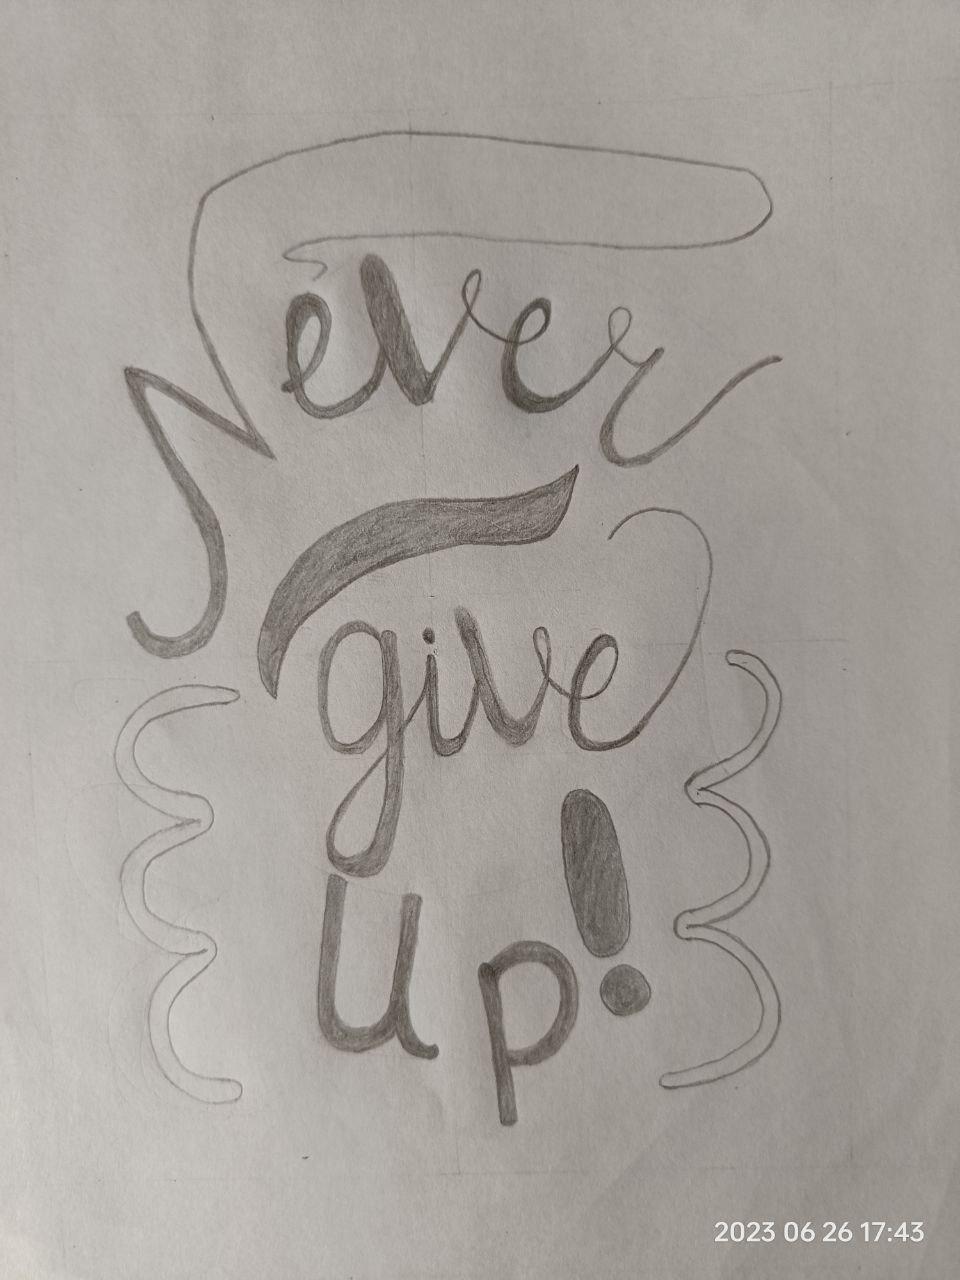 Never
give
up!
2023 06 26 17:43